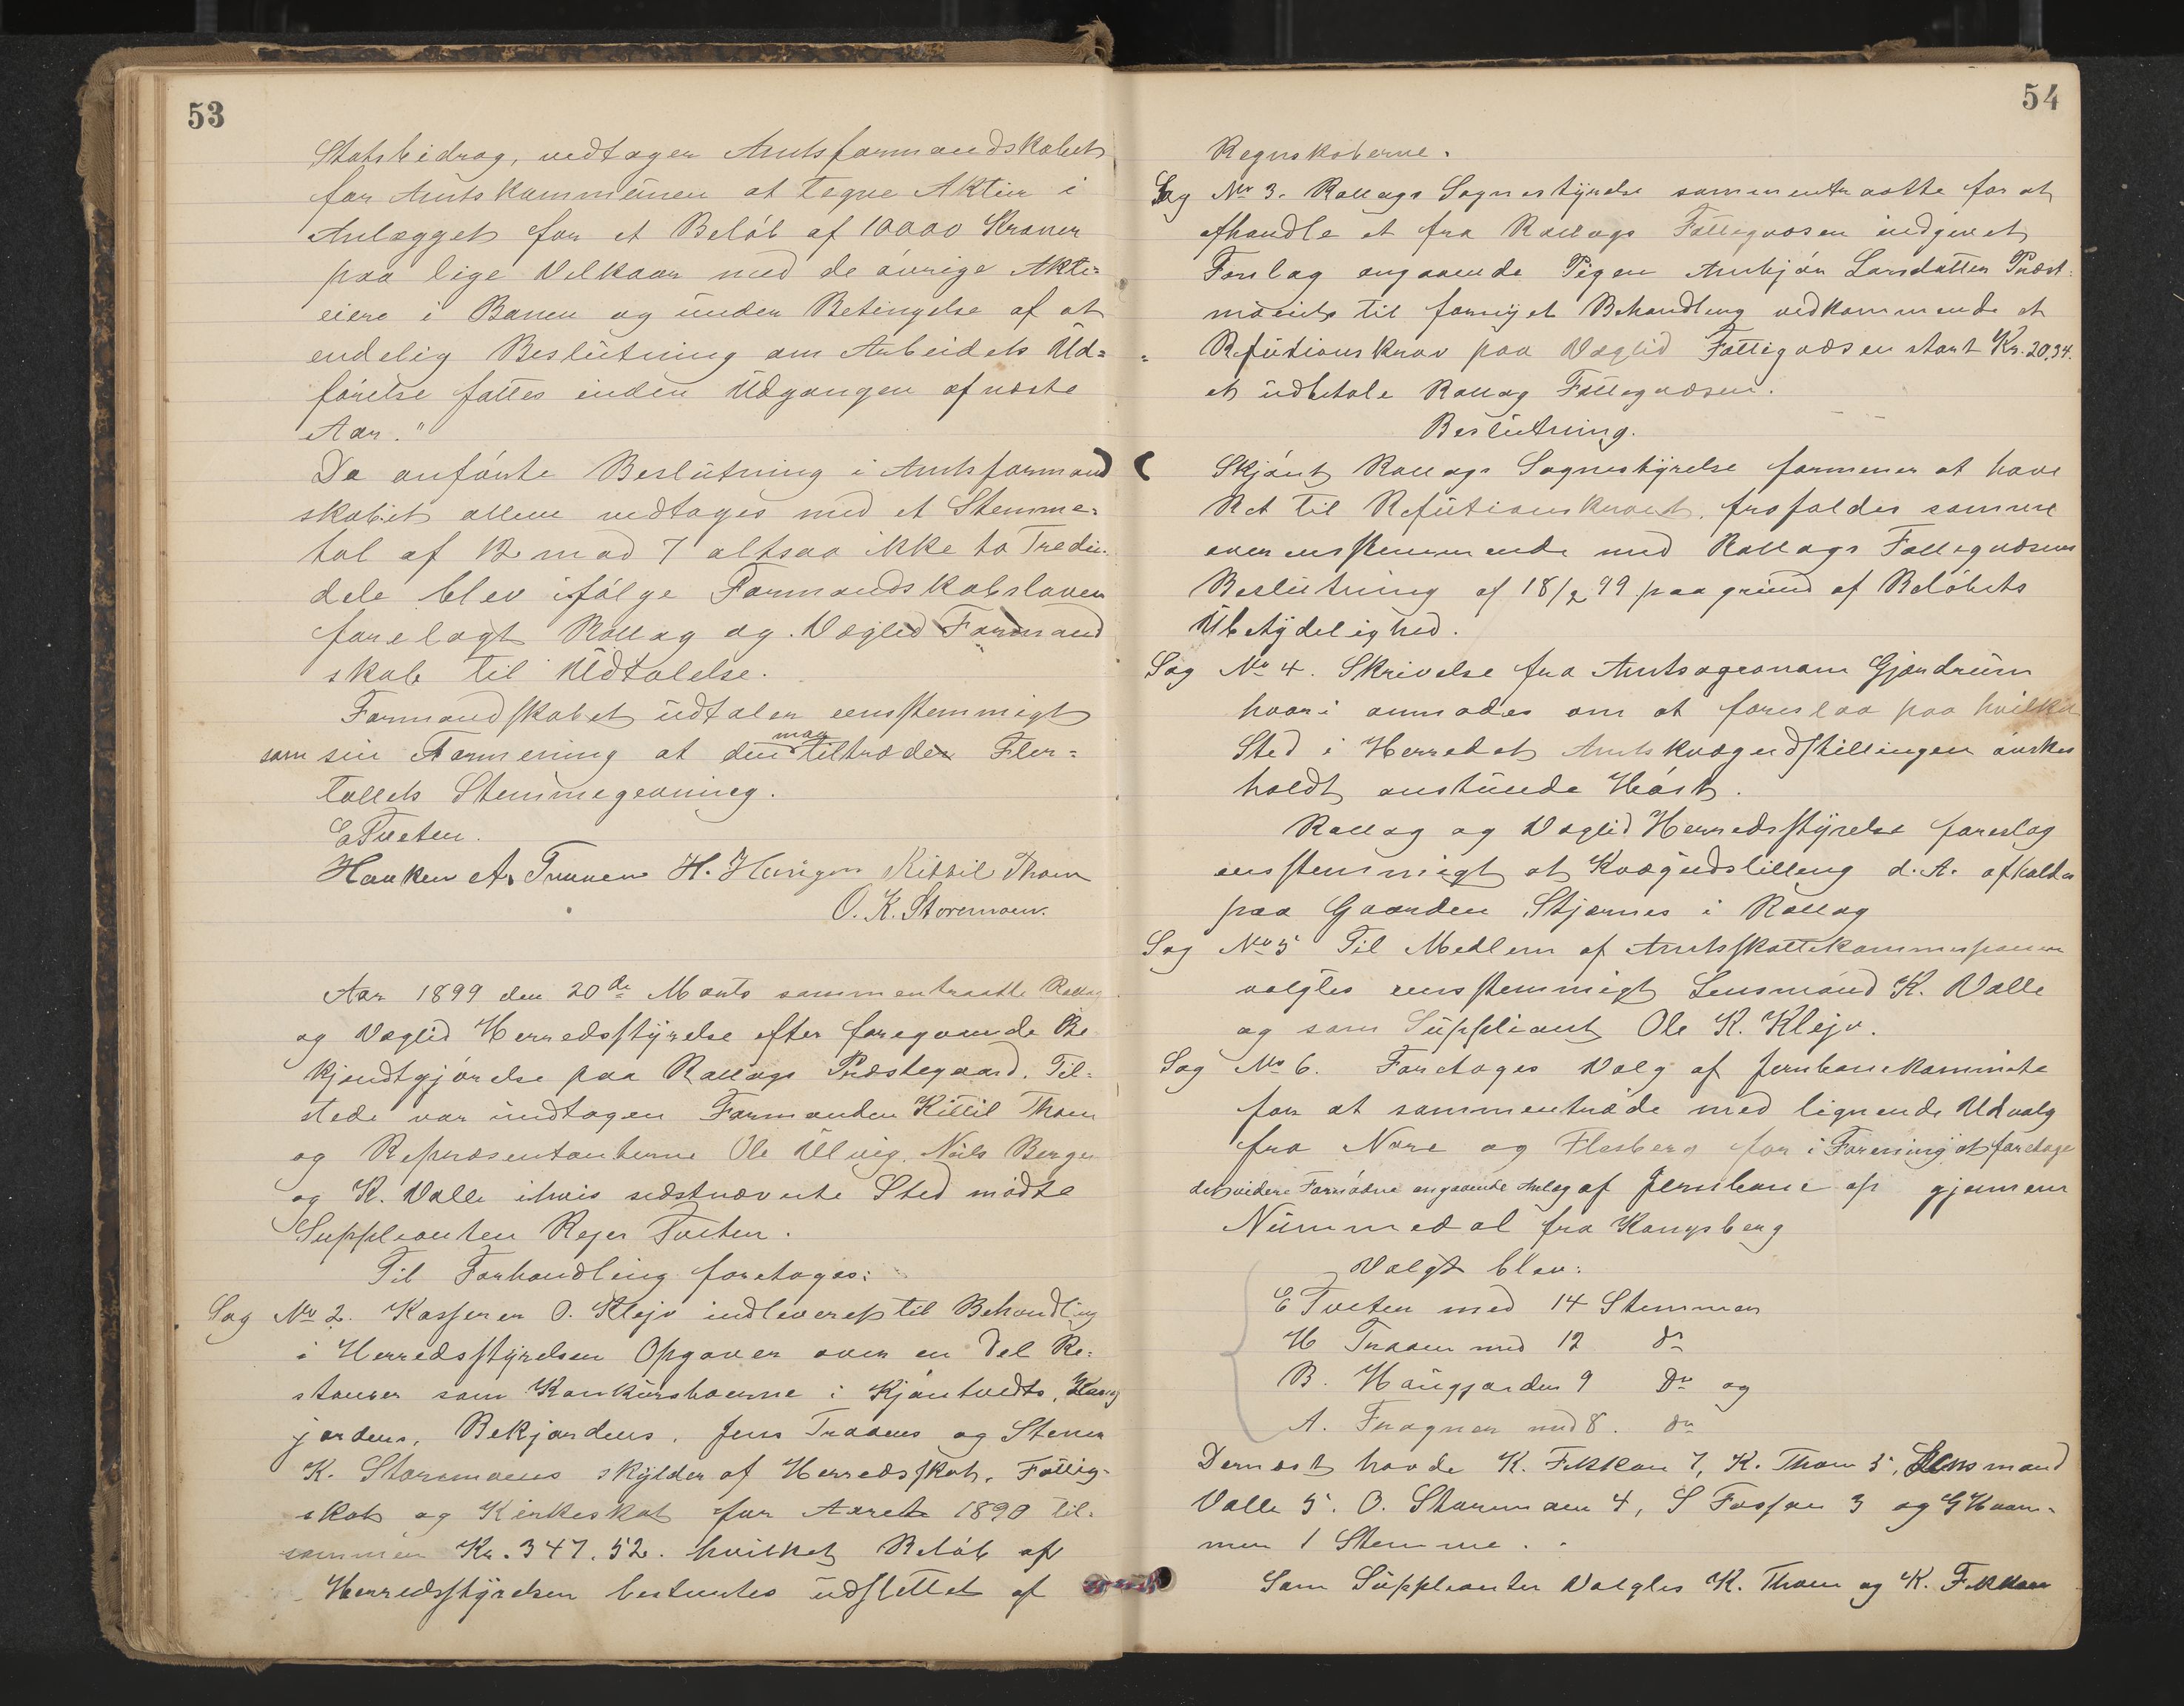 53
Statsbidrag, vedtager Amtsformandskabet
for Amtskommunen at tegne Aktier i
Anlægget for et Beløb af 10000 Kroner
paa lige Vilkaar med de øvrige Aktie=
eiere i Banen og under Betingelse af at
endelig Beslutning om Arbeidets Ud=
førelse fattes inden Udgangen af næste
Aar."
Da anførte Beslutning i Amtsformand
skabet allene vedtages med et Stemme=
tal af 12 mod 7 altsaa ikke to Tredie=
dele blev ifølge Formandskabsloven
forelagt Rollag og Væglid Formand
skab til Udtalelse.
Formandskabet udtaler eensstemmigt
man
som sin Formening at den tiltræder Fler=
tallets Stemmegevning.
E Tveten.
Haaken A. Traaen H. Kittil Thoen
O. K. Storemoen.
Aar 1899 den 20de Marts sammentraadte Rollag
og Væglid Herredsstyrelse efter foregaaende Be
kjendtgjørelse paa Rollags Præstegaard. Til=
stede var undtagen Formanden Kittil Thoen
og Repræsentanterne Ole Ulvig, Nils Bergen
og K. Valle ihvis sidstnævnte Sted mødte
Suppleanten Rejer Tveten.
Til Forhandling foretoges:
Sag No 2. Kasserer O. Klejv indleverest til Behandling
i Herredsstyrelsen Opgaver over en Del Re=
stancer som Konkursboerne i Kjøntvedts, Haug
jordens, Bekjordens, Jens Traaens og Stener
K. Storemoens skylder af Herredsskat, Fattig=
skat og Kirkeskat for Aaret 1890 til=
sammen Kr. 347.52. hvilket Beløb af
Herredsstyrelsen bestemtes udslettet af
54
Regnskaberne.
Sag No 3. Rollags Sognestyrelse sammentraatte for at
afhandle et fra Rollags Fattigvæsen indgivet
Forslag angaaende Pigen Ambjør Larsdatter Præst=
moeiets til fornyet Behandling vedkommende et
Refutionskrav paa Væglid Fattigvæsen stort Kr. 20,34.
at udbetale Rollag Fattigvæsen.
Beslutning.
Skjønt Rollags Sognestyrelse formener at have
Ret til Refutionskravet, frafaldes samme
overensstemmende med Rollags Fattigvæsens
Beslutning af 18/2 99 paa grund af Beløbets
Ubetydelighed.
Sag No 4. Skrivelse fra Amtsagronom Gjørdrum
hvori anmodes om at foreslaa paa hvilket
Sted i Herredet Amtskvægudstillingen ønskes
holdt anstunde Høst.
Rollag og Væglid Herredsstyrelse foreslog
eensstemmigt at Kvægudstilling d. A. afholdes
paa Gaarden Stjærnes i Rollag
Sag No 5 Til Medlem af Amtsskattekommissionen
valgtes eensstemmigt Lensmand K. Valle
og som Suppliant Ole K. Klejv.
Sag No 6. Foretoges Valg af Jernbanekommite
for at sammentræde med lignende Udvalg
fra Nore og Flesberg for i Forening at foretage
det videre Fornødne angaaende Anlæg af Jernbane op gjennem
Nummedal fra Kongsberg
Valgt blev:
E Tveten med 14 Stemmer
H Traaen med 12 do
B. Haugjorden 9 Do og
A. Fragner med 8. do
Dernæst havde K. Fekkan 7, K. Thoen 5, Lensmand
Valle 5. O. Stormoen 4, S Fossan 3 og G Kvam=
men 1 Stemme.
Som Suppleanter Valgtes K. Thoen og K. Fekkan